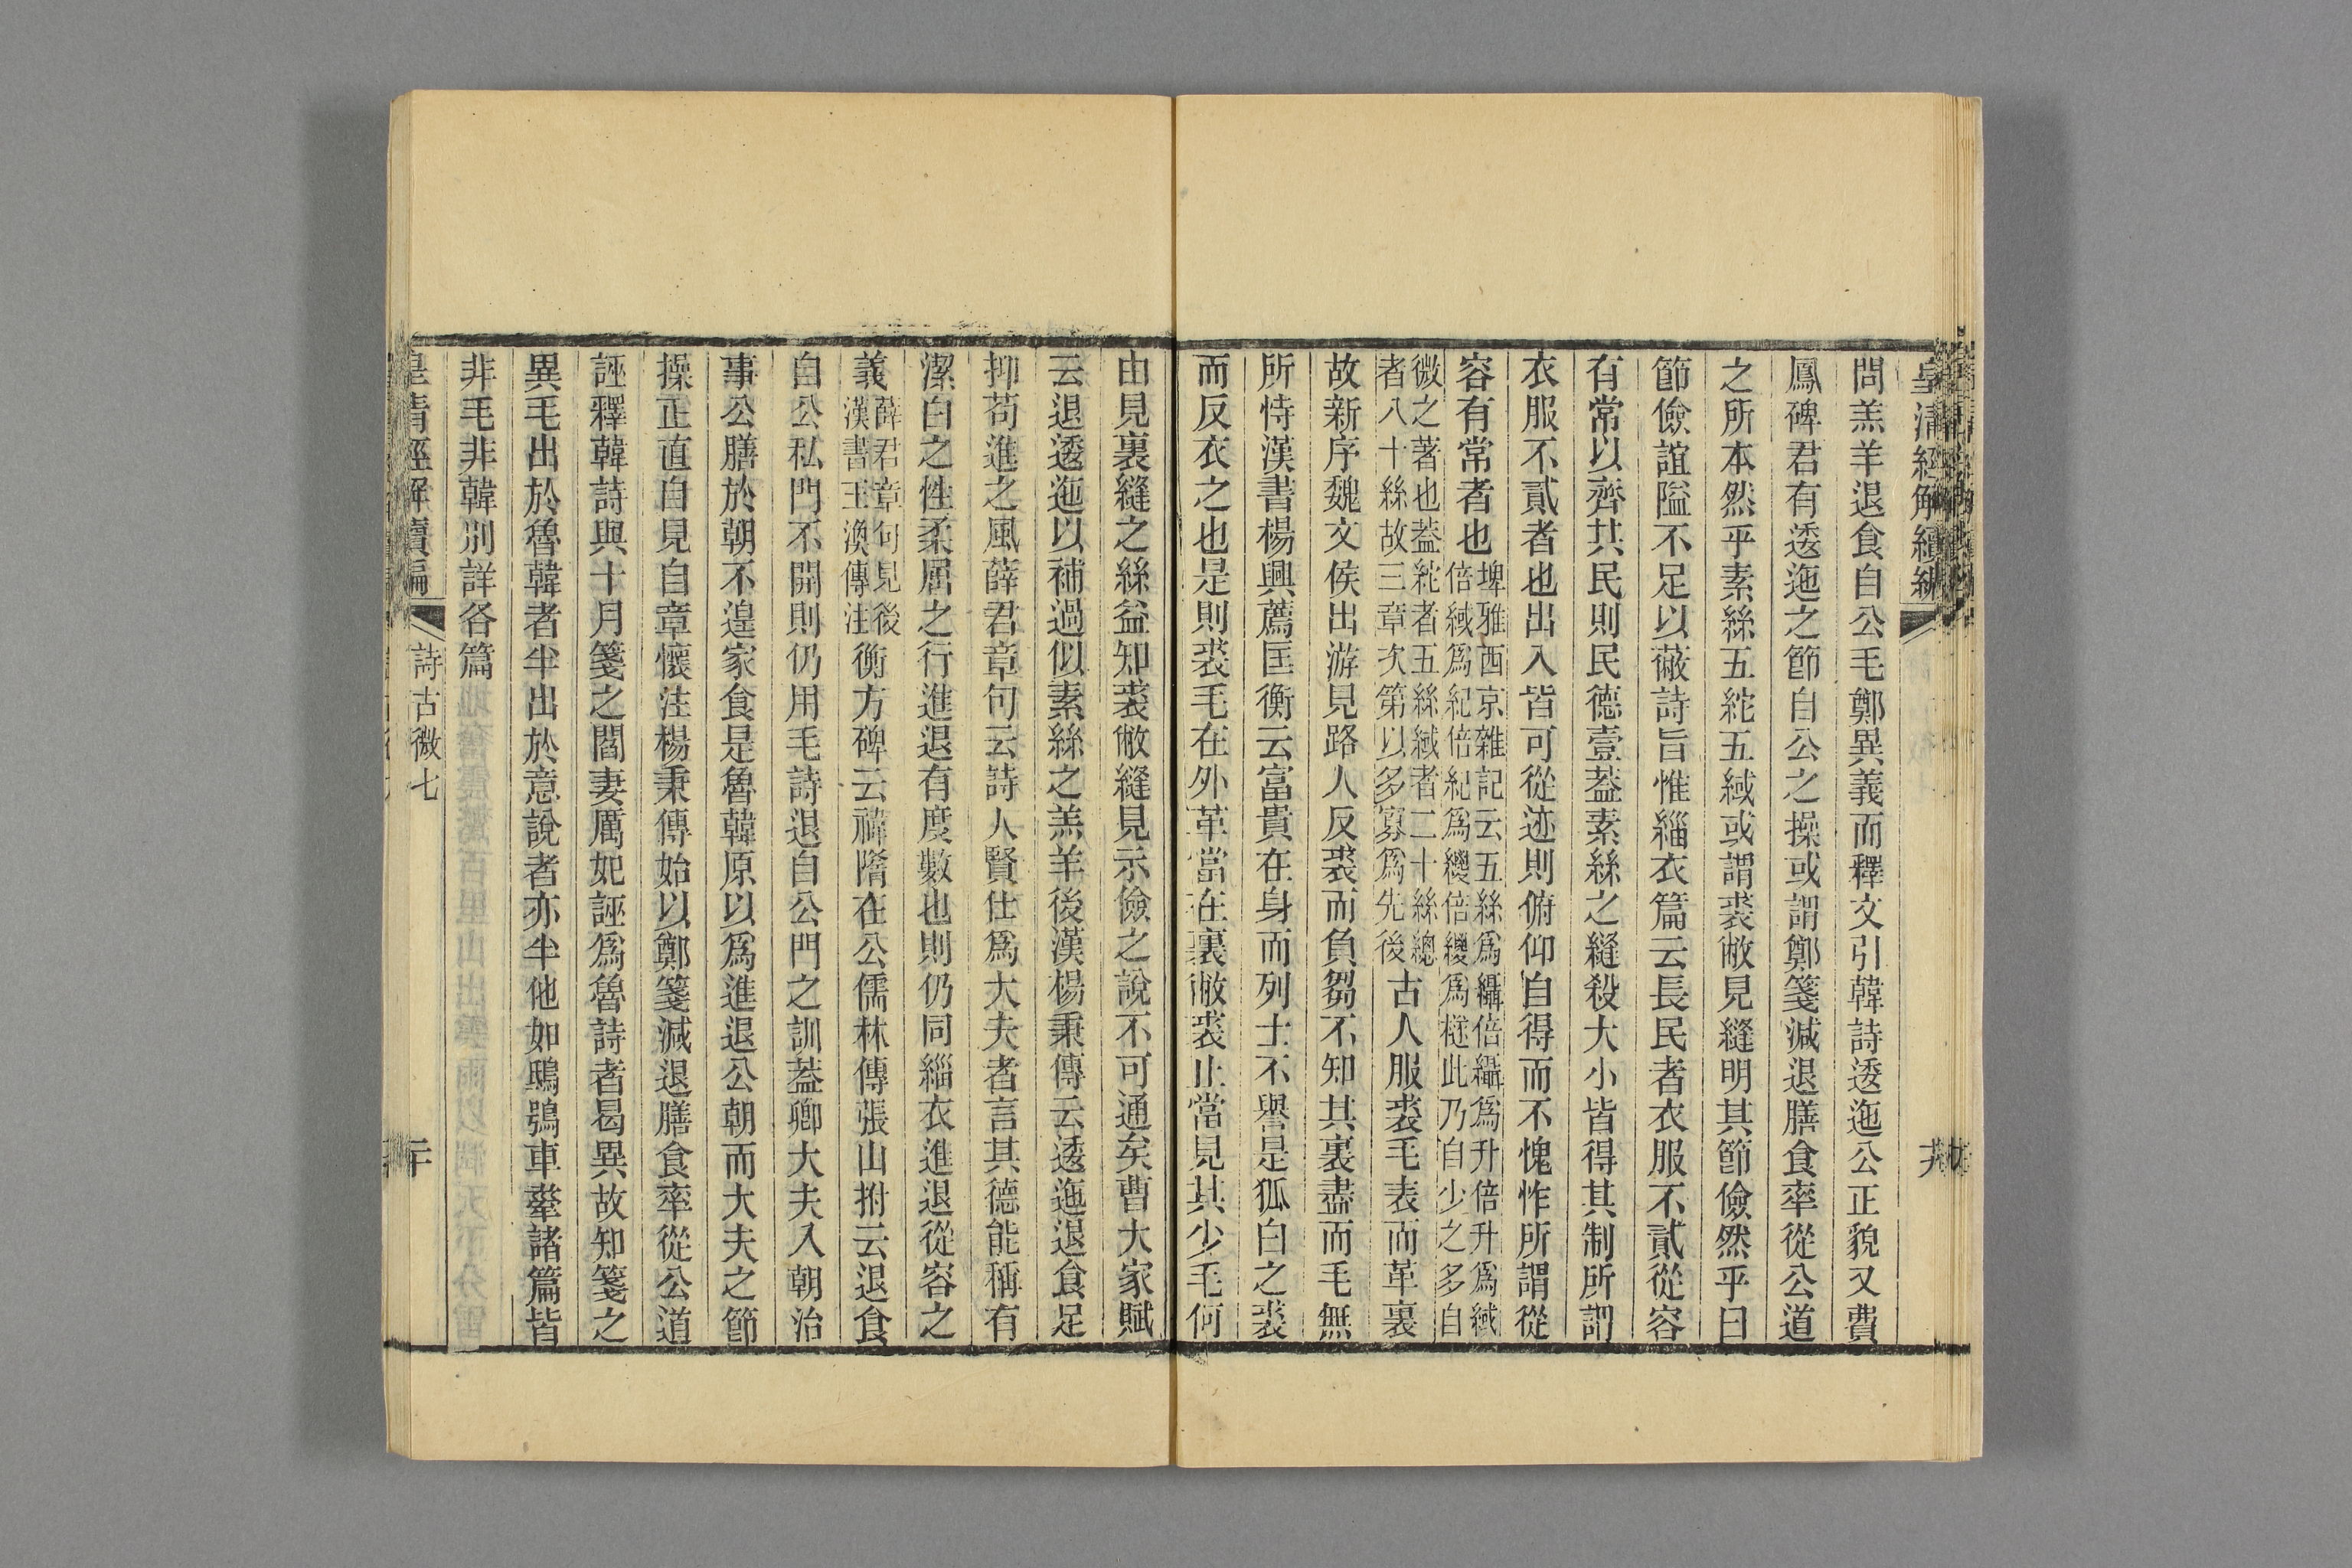 皇清經解續編
問羔羊退食自公毛鄭異義而釋文引韓詩逶迤公正貌又費
鳳碑君有逶迤之節自公之操或謂鄭箋減退膳食率從公道
之所本然乎素絲五紽五緎或謂裘敝見縫明其節儉然乎曰
節儉誼隘不足以蔽詩旨惟緇衣篇云長民者衣服不貳從容
有常以齊其民則民德壹葢素絲之縫殺大小皆得其制所謂
衣服不貳者也出入皆可從迹則俯仰自得而不愧怍所謂從
容有常者也埤雅西京雜記云五絲爲䌰倍䌰爲升倍升爲緎
倍緎爲紀倍紀爲緵倍緵爲襚此乃自少之多自
微之著也葢紽者五絲緎者二十絲總
者八十絲故三章次第以多寡爲先後古人服裘毛表而革裏
故新序魏文侯出游見路人反裘而負芻不知其裏盡而毛無
所恃漢書楊興薦匡衡云富貴在身而列士不譽是狐白之裘
而反衣之也是則裘毛在外革當在裏敝裘止當見其少毛何
由見裏縫之絲益知裘敝縫見示儉之說不可通矣曹大家賦
云退逶迤以補過似素絲之羔羊後漢楊秉傳云逶迤退食足
抑苟進之風薛君章句云詩人賢仕爲大夫者言其德能稱有
潔白之性柔屈之行進退有度數也則仍同緇衣進退從容之
義薛君章句見後
漢書王渙傳注衡方碑云禕隋在公儒林傳張山拊云退食
自公私門不開則仍用毛詩退自公門之訓葢卿大夫入朝治
事公膳於朝不遑家食是魯韓原以爲進退公朝而大夫之節
操正直自見自章懷注楊秉傳始以鄭箋減退膳食率從公道
誣釋韓詩與十月箋之閻妻厲妃誣爲魯詩者曷異故知箋之
異毛出於魯韓者半出於意說者亦半他如鴟鴞車舝諸篇皆
非毛非韓別詳各篇
皇清經解續編
詩古微七